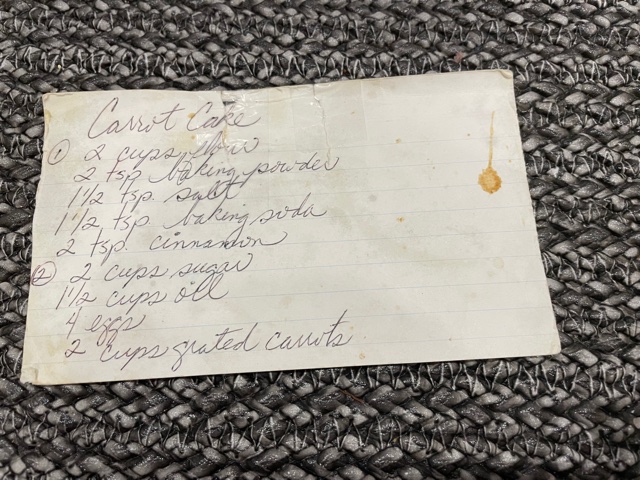 Carrot Cake
① 2 cups flour
2 tsp. baking powder
1 1/2 tsp. salt
1 1/2 tsp. baking soda
2 tsp. cinnamon
② 2 cups sugar
1 1/2 cups oil
4 eggs
2 cups grated carrots